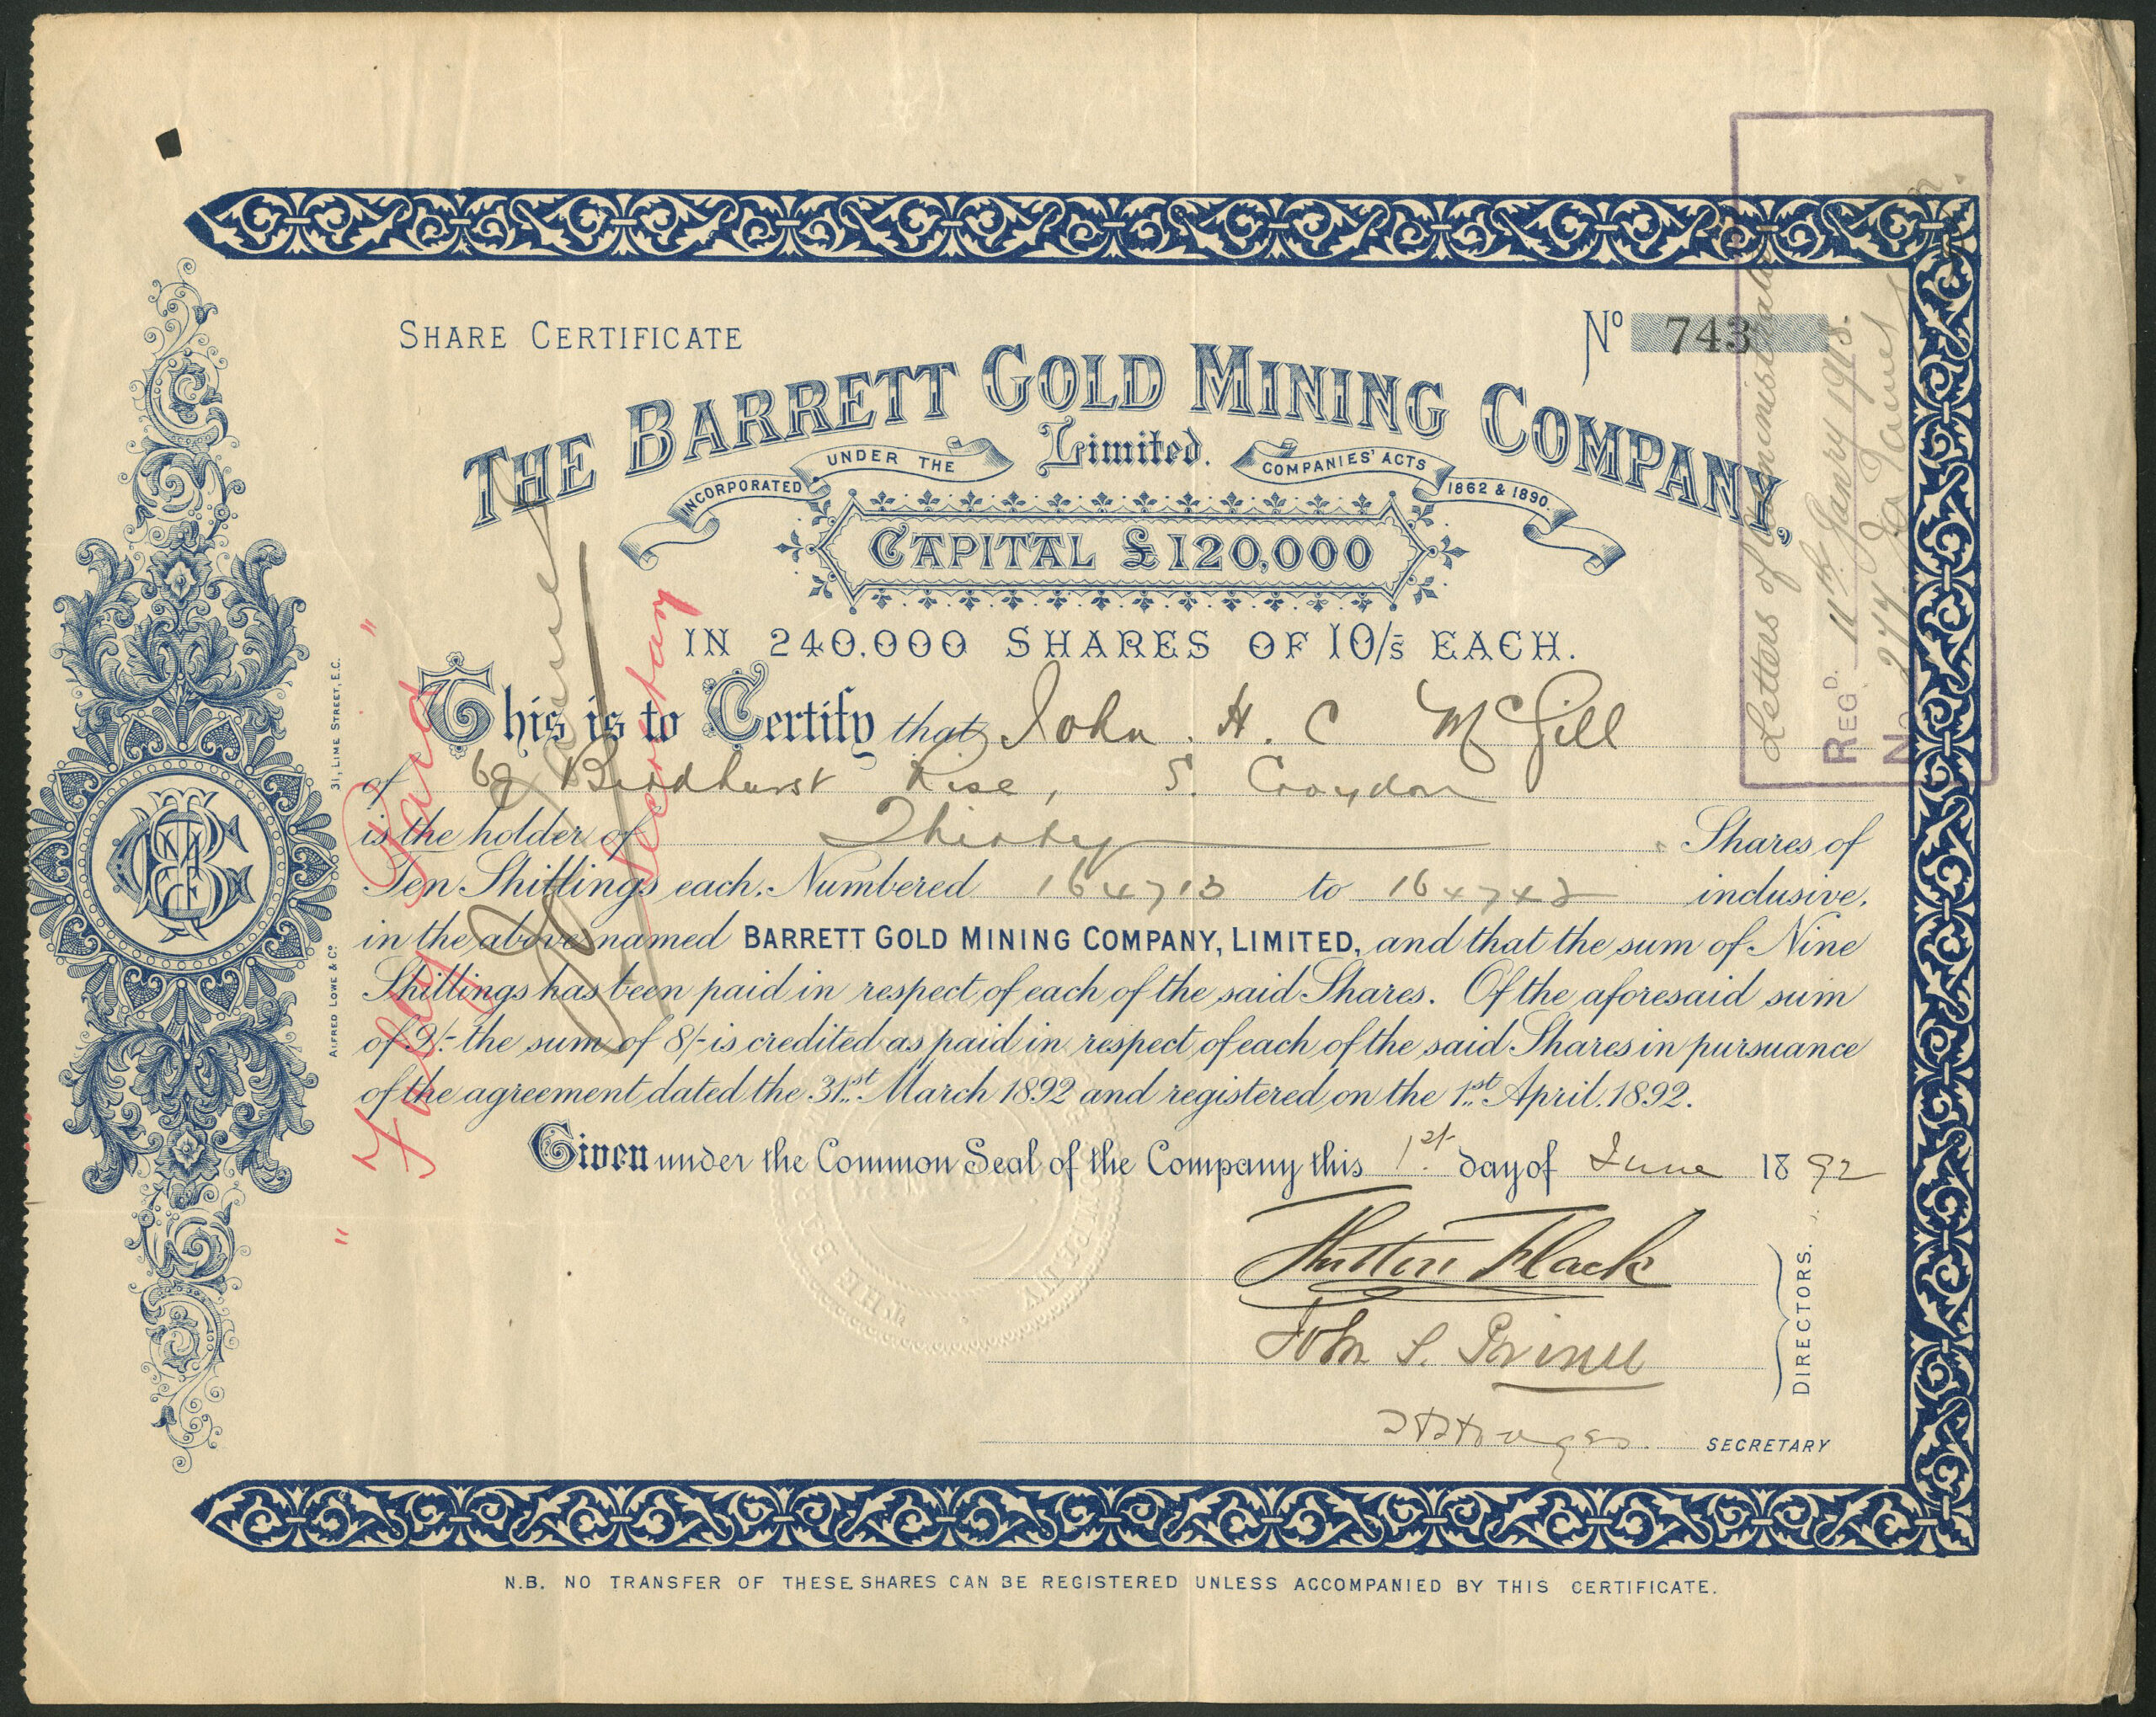 SHARE CERTIFICATE
Nº 743
THE BARRETT GOLD MINING COMPANY,
Limited.
INCORPORATED UNDER THE COMPANIES' ACTS 1862 & 1890.
CAPITAL £120,000
IN 240,000 SHARES OF 10/s EACH.
This is to Certify that John. H. C McGill
of 69 Birdhurst Rise, S. Croydon
is the holder of Thirty Shares of
Ten Shillings each, Numbered 164713 to 164742 inclusive,
in the above named BARRETT GOLD MINING COMPANY, LIMITED, and that the sum of Nine
Shillings has been paid in respect of each of the said Shares. Of the aforesaid sum
of 9/- the sum of 8/- is credited as paid in respect of each of the said Shares in pursuance
of the agreement dated the 31st March 1892 and registered on the 1st April, 1892.
Given under the Common Seal of the Company this 1st day of June 1892
Flack
John S. Prince
DIRECTORS.
SECRETARY
N.B. NO TRANSFER OF THESE SHARES CAN BE REGISTERED UNLESS ACCOMPANIED BY THIS CERTIFICATE.
ALFRED LOWE & Cº 31, LIME STREET, E.C.
"Fully Paid"
Secretary
Letters of Administration
REGD. 11th Janry 1918.
No 277.